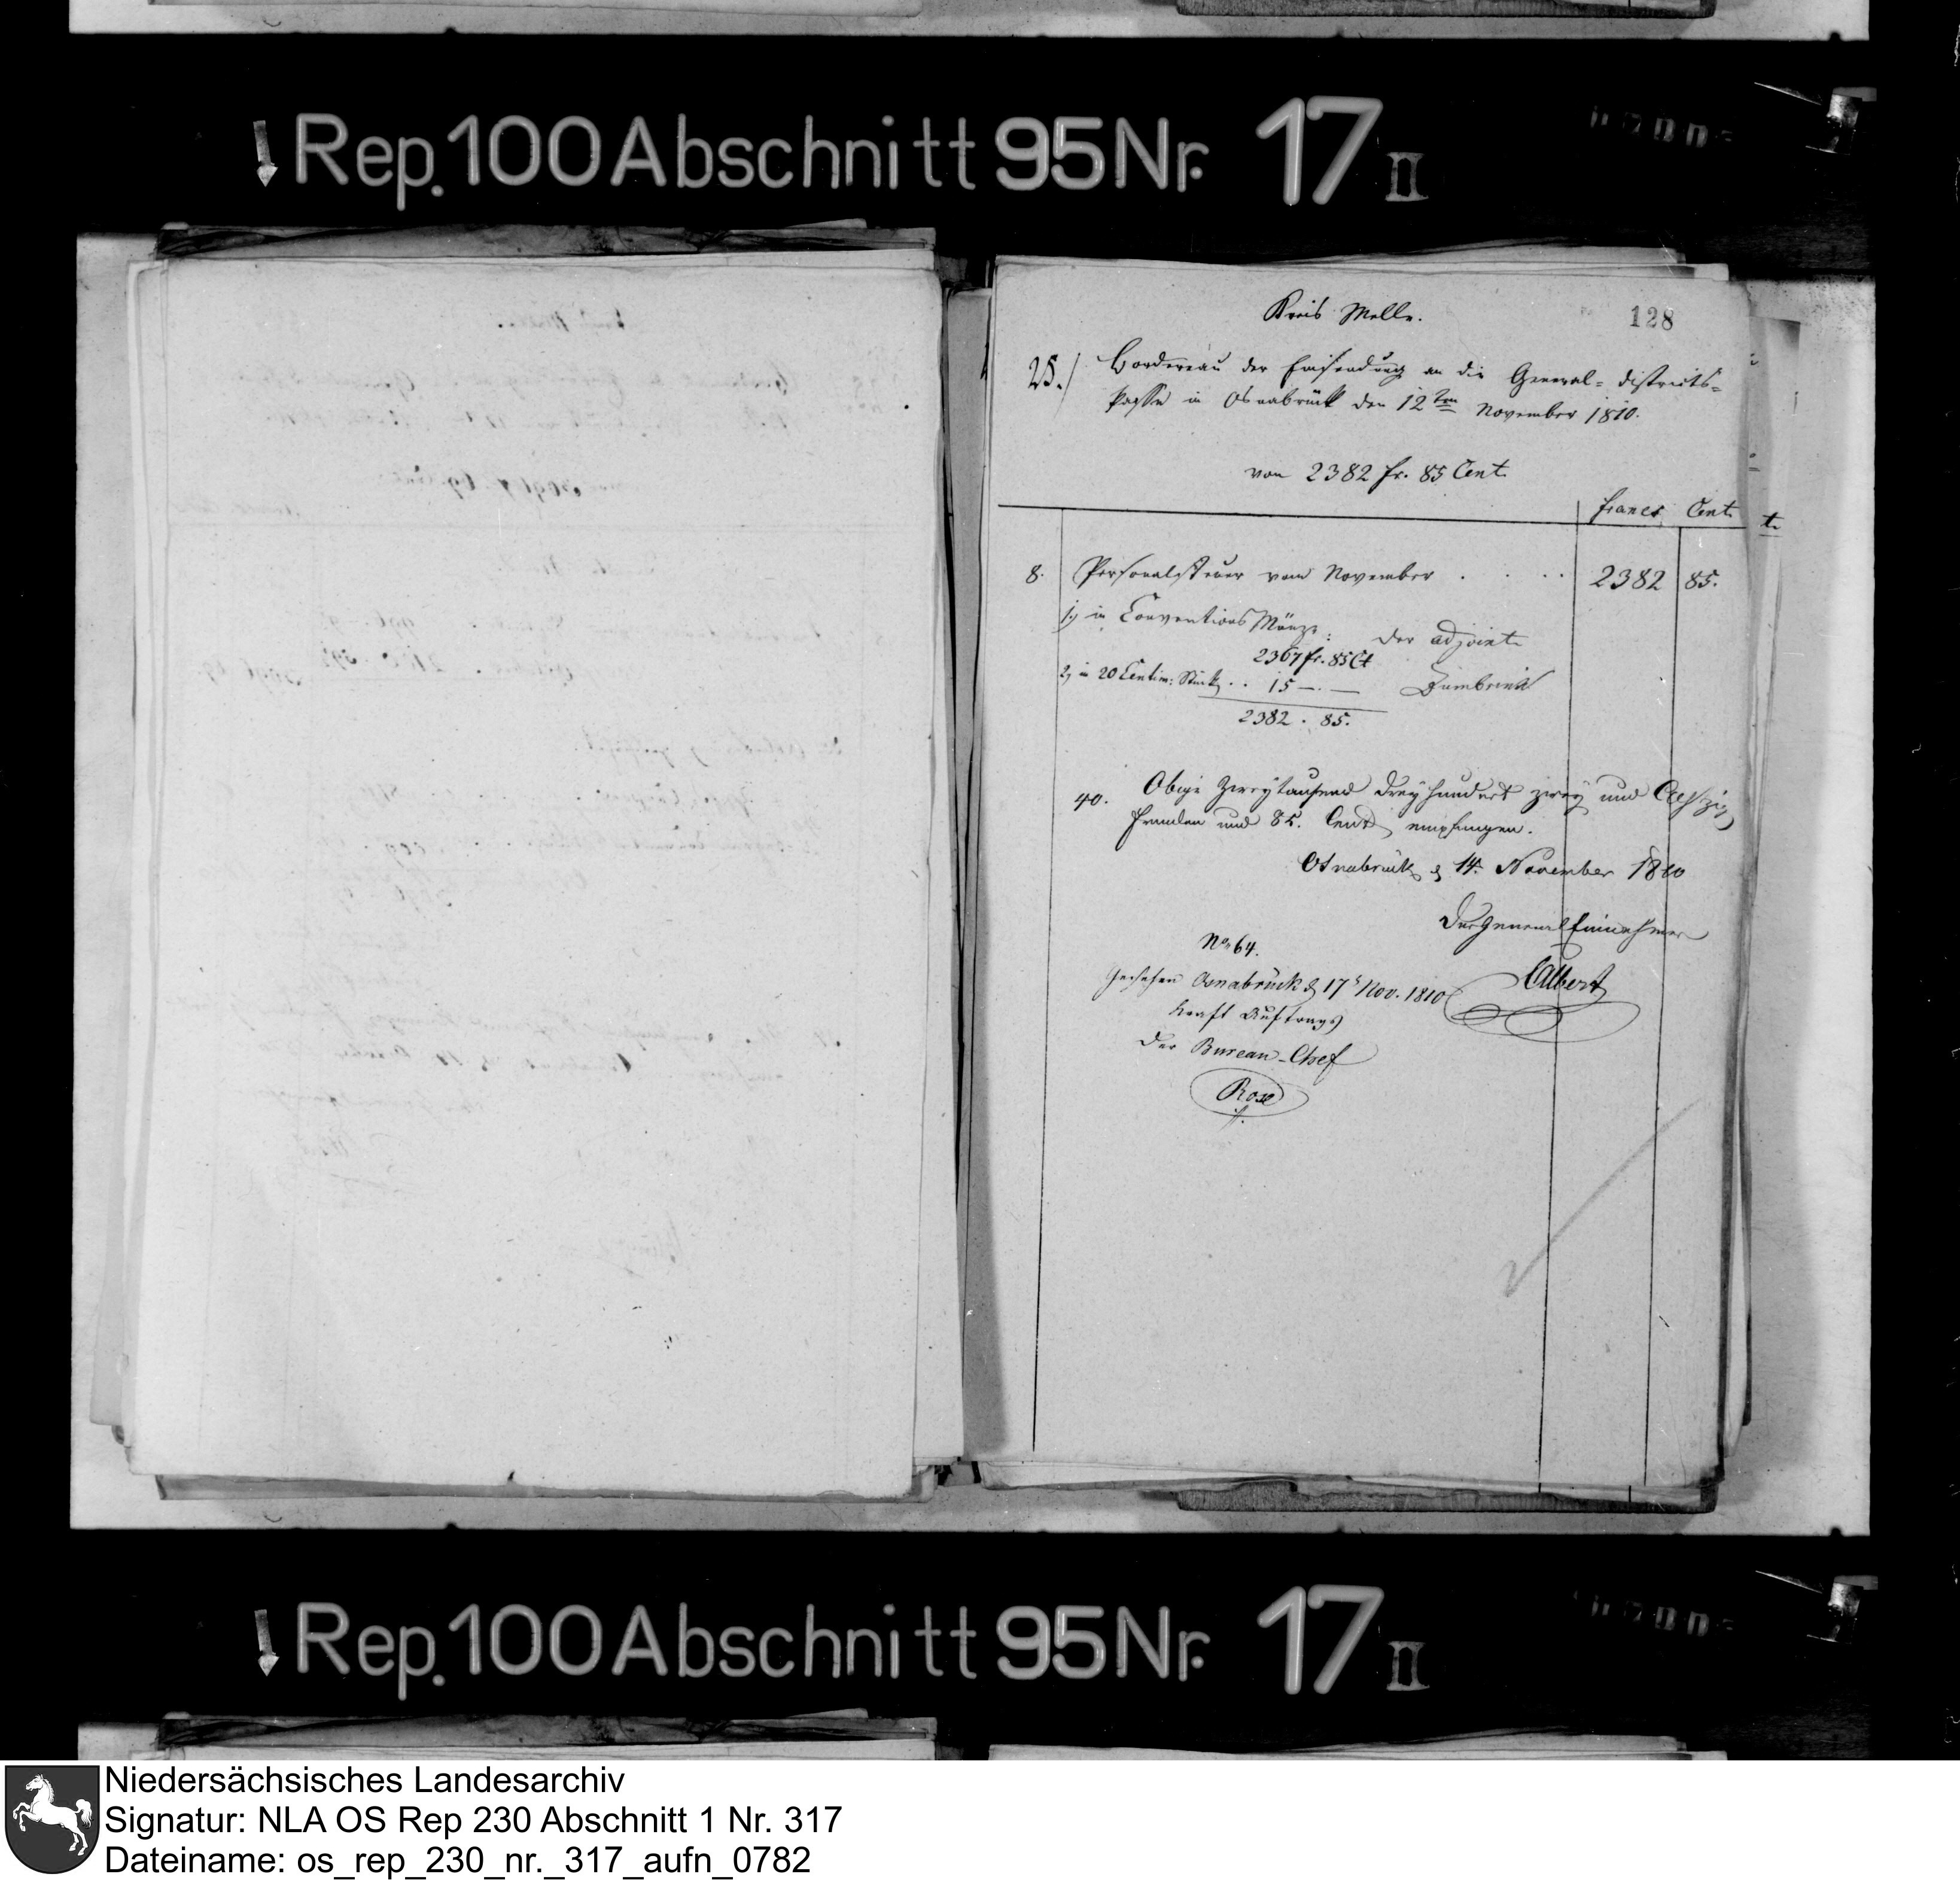 Rep. 100 Abschnitt 95 Nr. 17 II
Kreis Melle.
128
25./ Bordereau der Einsendung an die General- Districts-
Kasse in Osnabrück den 12ten November 1810.
von 2382 fr. 85 Cent.
francs Cent.
t.
8. Personalsteuer vom November . . . . 2382 85.
1, in Conventions Münze: der adjoint
2367 fr. 85 Ct
2, in 20 Centim: Stück . . 15 —.—
2382 . 85.
40. Obige zweytausend dreyhundert zwey und Achtzig
Franken und 85. Cent empfangen.
Osnabrück d 14. November 1810
Der General Einnehmer
Albert
No 64.
Gesehen Osnabrück d 17t Nov. 1810
Kraft Auftrags
Der Bureau-Chef
Rose
Rep. 100 Abschnitt 95 Nr. 17 II
Niedersächsisches Landesarchiv
Signatur: NLA OS Rep 230 Abschnitt 1 Nr. 317
Dateiname: os_rep_230_nr._317_aufn_0782